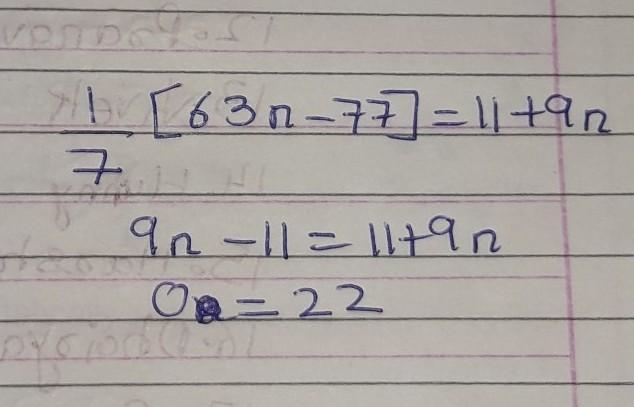 1/7 [63n-77]=11+9n
9n-11=11+9n
0=22